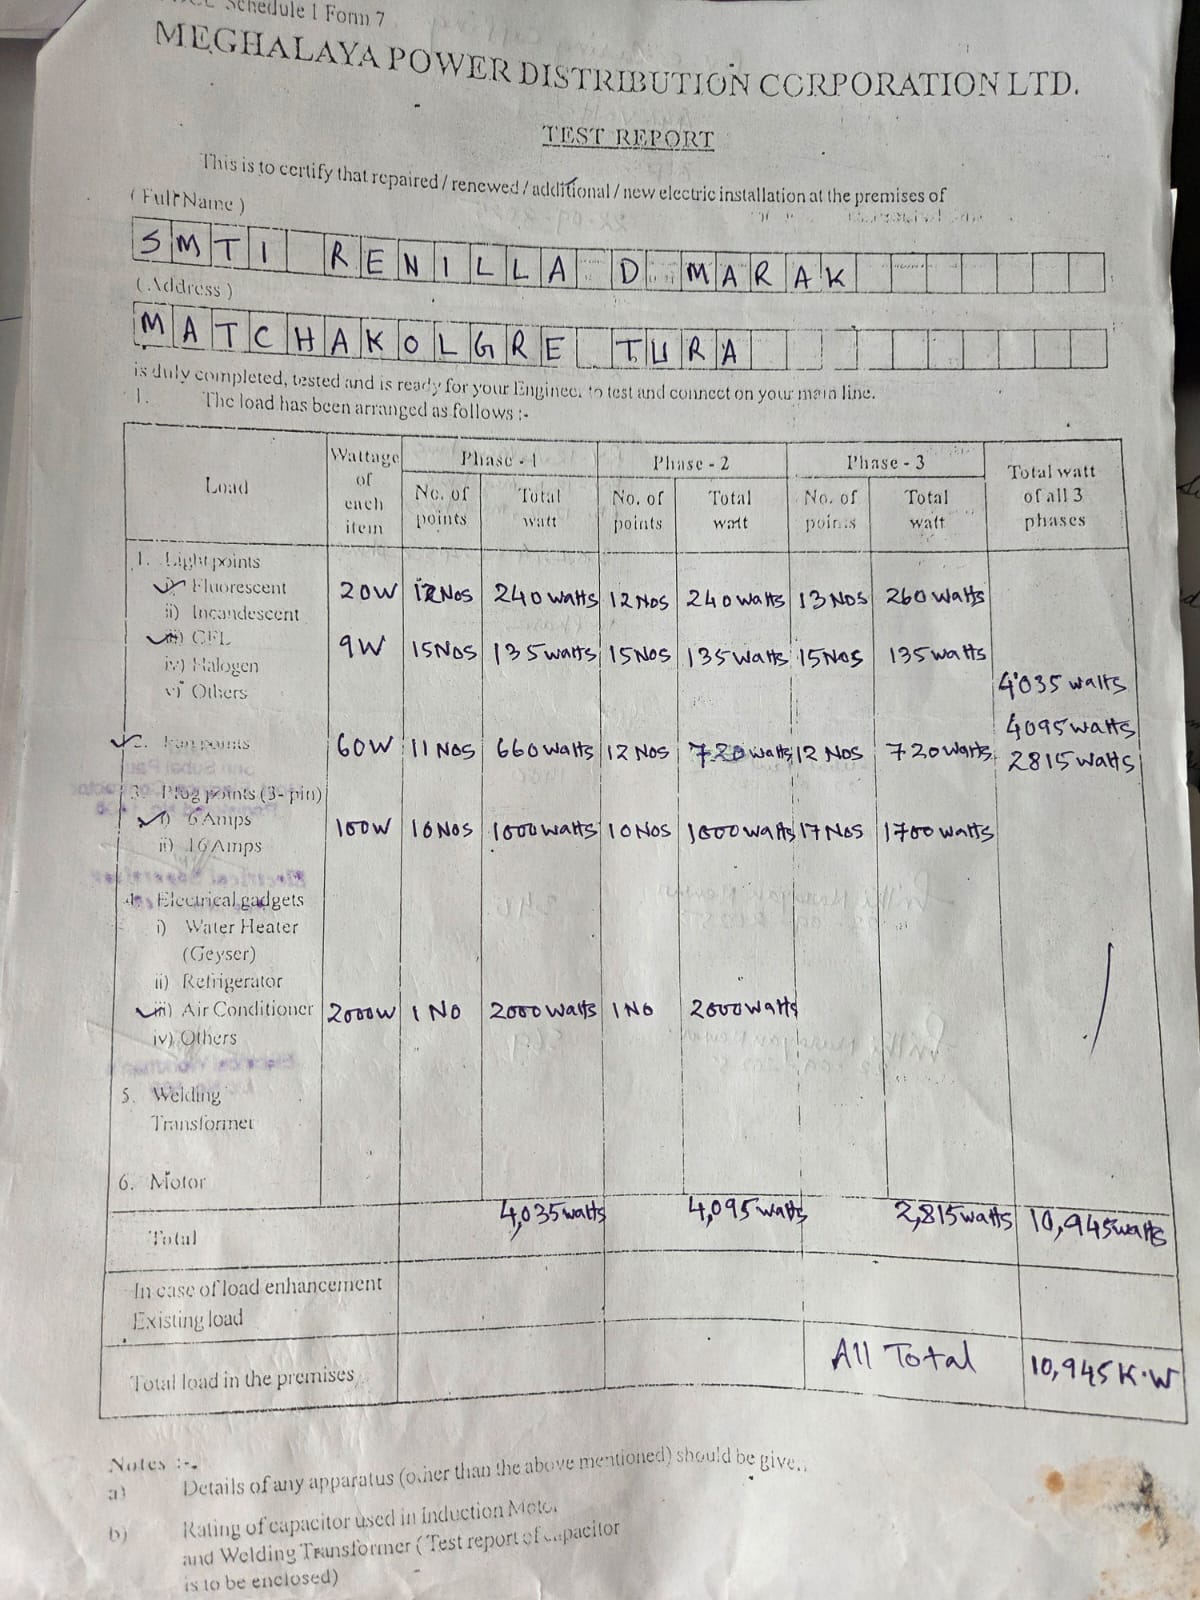 Schedule 1 Form 7
MEGHALAYA POWER DISTRIBUTION CORPORATION LTD.
TEST REPORT
This is to certify that repaired / renewed / additional / new electric installation at the premises of
( Full Name )
SMTI RENILLA D MARAK
( Address )
MATCHAKOLGRE TURA
is duly completed, tested and is ready for your Engineer to test and connect on your main line.
1. The load has been arranged as follows :-
Load Wattage of each item Phase - 1 Phase - 2 Phase - 3 Total watt of all 3 phases
No. of points Total watt No. of points Total watt No. of points Total watt
1. Light points
i) Fluorescent 20W 12Nos 240watts 12Nos 240watts 13Nos 260watts
ii) Incandescent
iii) CFL 9W 15Nos 135watts 15Nos 135watts 15Nos 135watts
iv) Halogen
v) Others 4035watts
4095watts
2. Fan points 60W 11Nos 660watts 12Nos 720watts 12Nos 720watts 2815watts
3. Plug points (3- pin)
i) 6 Amps 100W 10Nos 1000watts 10Nos 1000watts 17Nos 1700watts
ii) 16 Amps
4. Electrical gadgets
i) Water Heater
(Geyser)
ii) Refrigerator
iii) Air Conditioner 2000W 1NO 2000watts 1NO 2000watts
iv) Others
5. Welding
Transformer
6. Motor
Total 4,035watts 4,095watts 2,815watts 10,945watts
In case of load enhancement
Existing load
Total load in the premises All Total 10,945K.W
Notes :-
a) Details of any apparatus (other than the above mentioned) should be give
b) Rating of capacitor used in Induction Motor
and Welding Transformer ( Test report of capacitor
is to be enclosed)